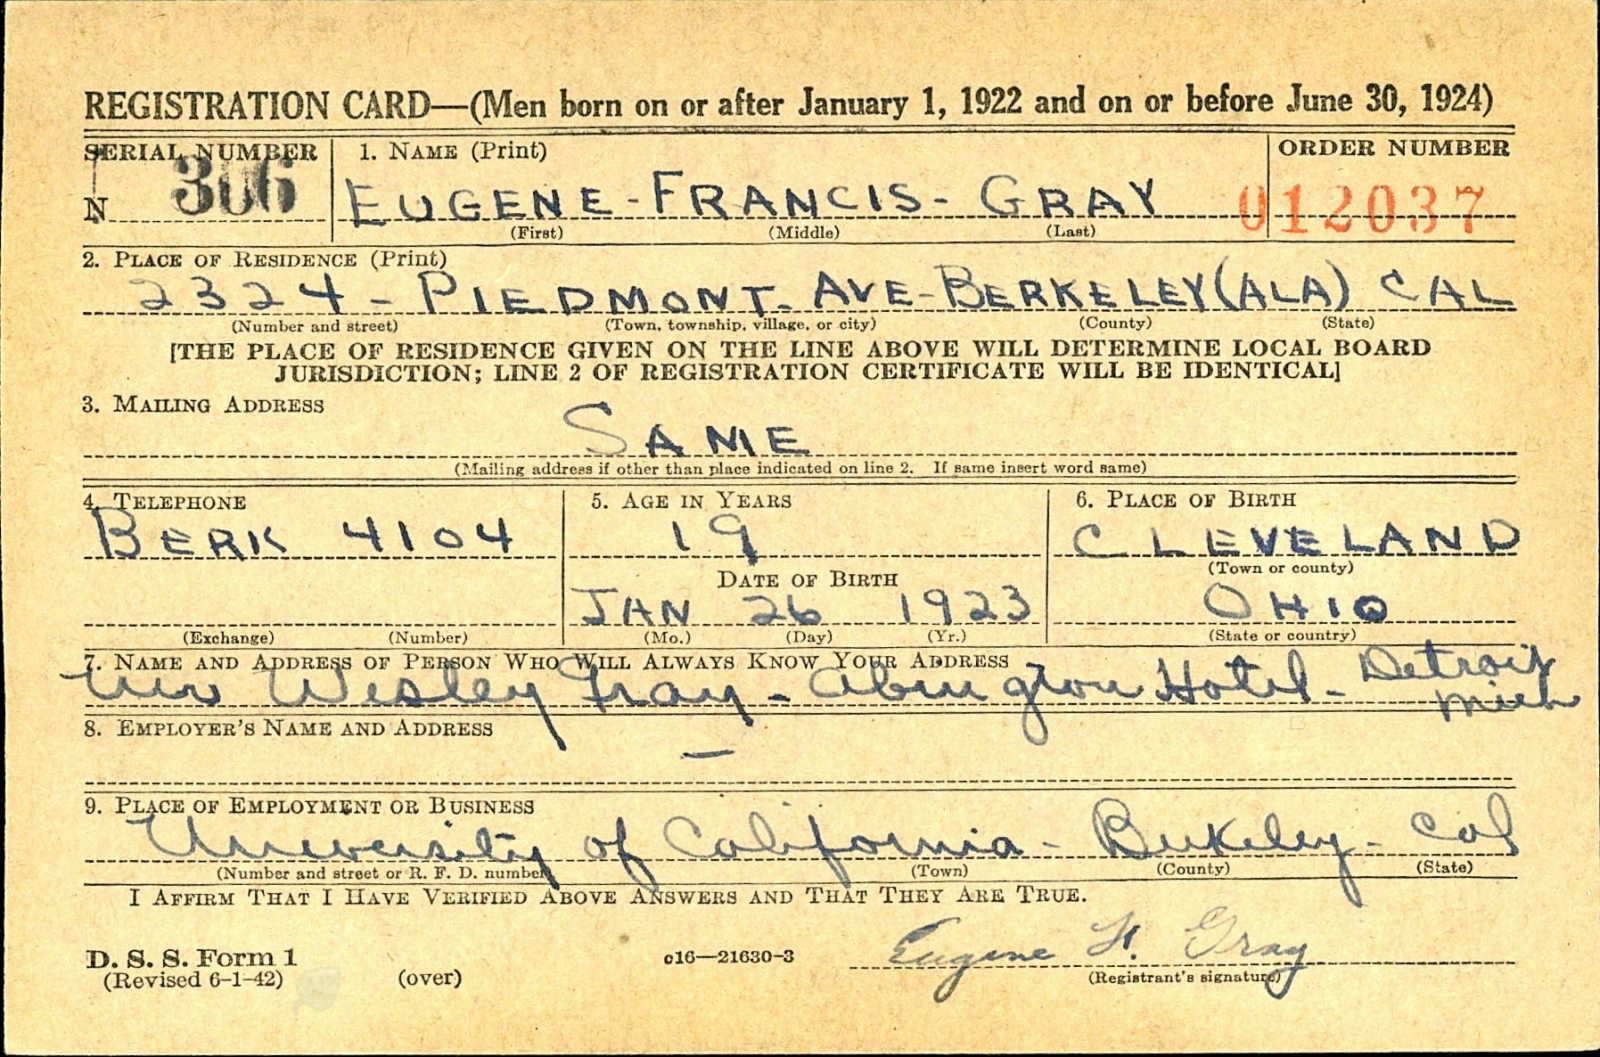 REGISTRATION CARD—(Men born on or after January 1, 1922 and on or before June 30, 1924)
SERIAL NUMBER 1. NAME (Print) ORDER NUMBER
N 306 EUGENE - FRANCIS - GRAY 012037
(First) (Middle) (Last)
2. PLACE OF RESIDENCE (Print)
2324 - PIEDMONT - AVE - BERKELEY (ALA) CAL
(Number and street) (Town, township, village, or city) (County) (State)
[THE PLACE OF RESIDENCE GIVEN ON THE LINE ABOVE WILL DETERMINE LOCAL BOARD
JURISDICTION; LINE 2 OF REGISTRATION CERTIFICATE WILL BE IDENTICAL]
3. MAILING ADDRESS
SAME
(Mailing address if other than place indicated on line 2. If same insert word same)
4. TELEPHONE 5. AGE IN YEARS 6. PLACE OF BIRTH
BERK 4104 19 CLEVELAND
(Town or county)
DATE OF BIRTH
JAN 26 1923 OHIO
(Exchange) (Number) (Mo.) (Day) (Yr.) (State or country)
7. NAME AND ADDRESS OF PERSON WHO WILL ALWAYS KNOW YOUR ADDRESS
Wesley Gray - Abington Hotel - Detroit
Mich
8. EMPLOYER'S NAME AND ADDRESS
—
9. PLACE OF EMPLOYMENT OR BUSINESS
University of California - Berkeley - Cal
(Number and street or R. F. D. number) (Town) (County) (State)
I AFFIRM THAT I HAVE VERIFIED ABOVE ANSWERS AND THAT THEY ARE TRUE.
D. S. S. Form 1 c16—21630-3 Eugene F. Gray
(Revised 6-1-42) (over) (Registrant's signature)